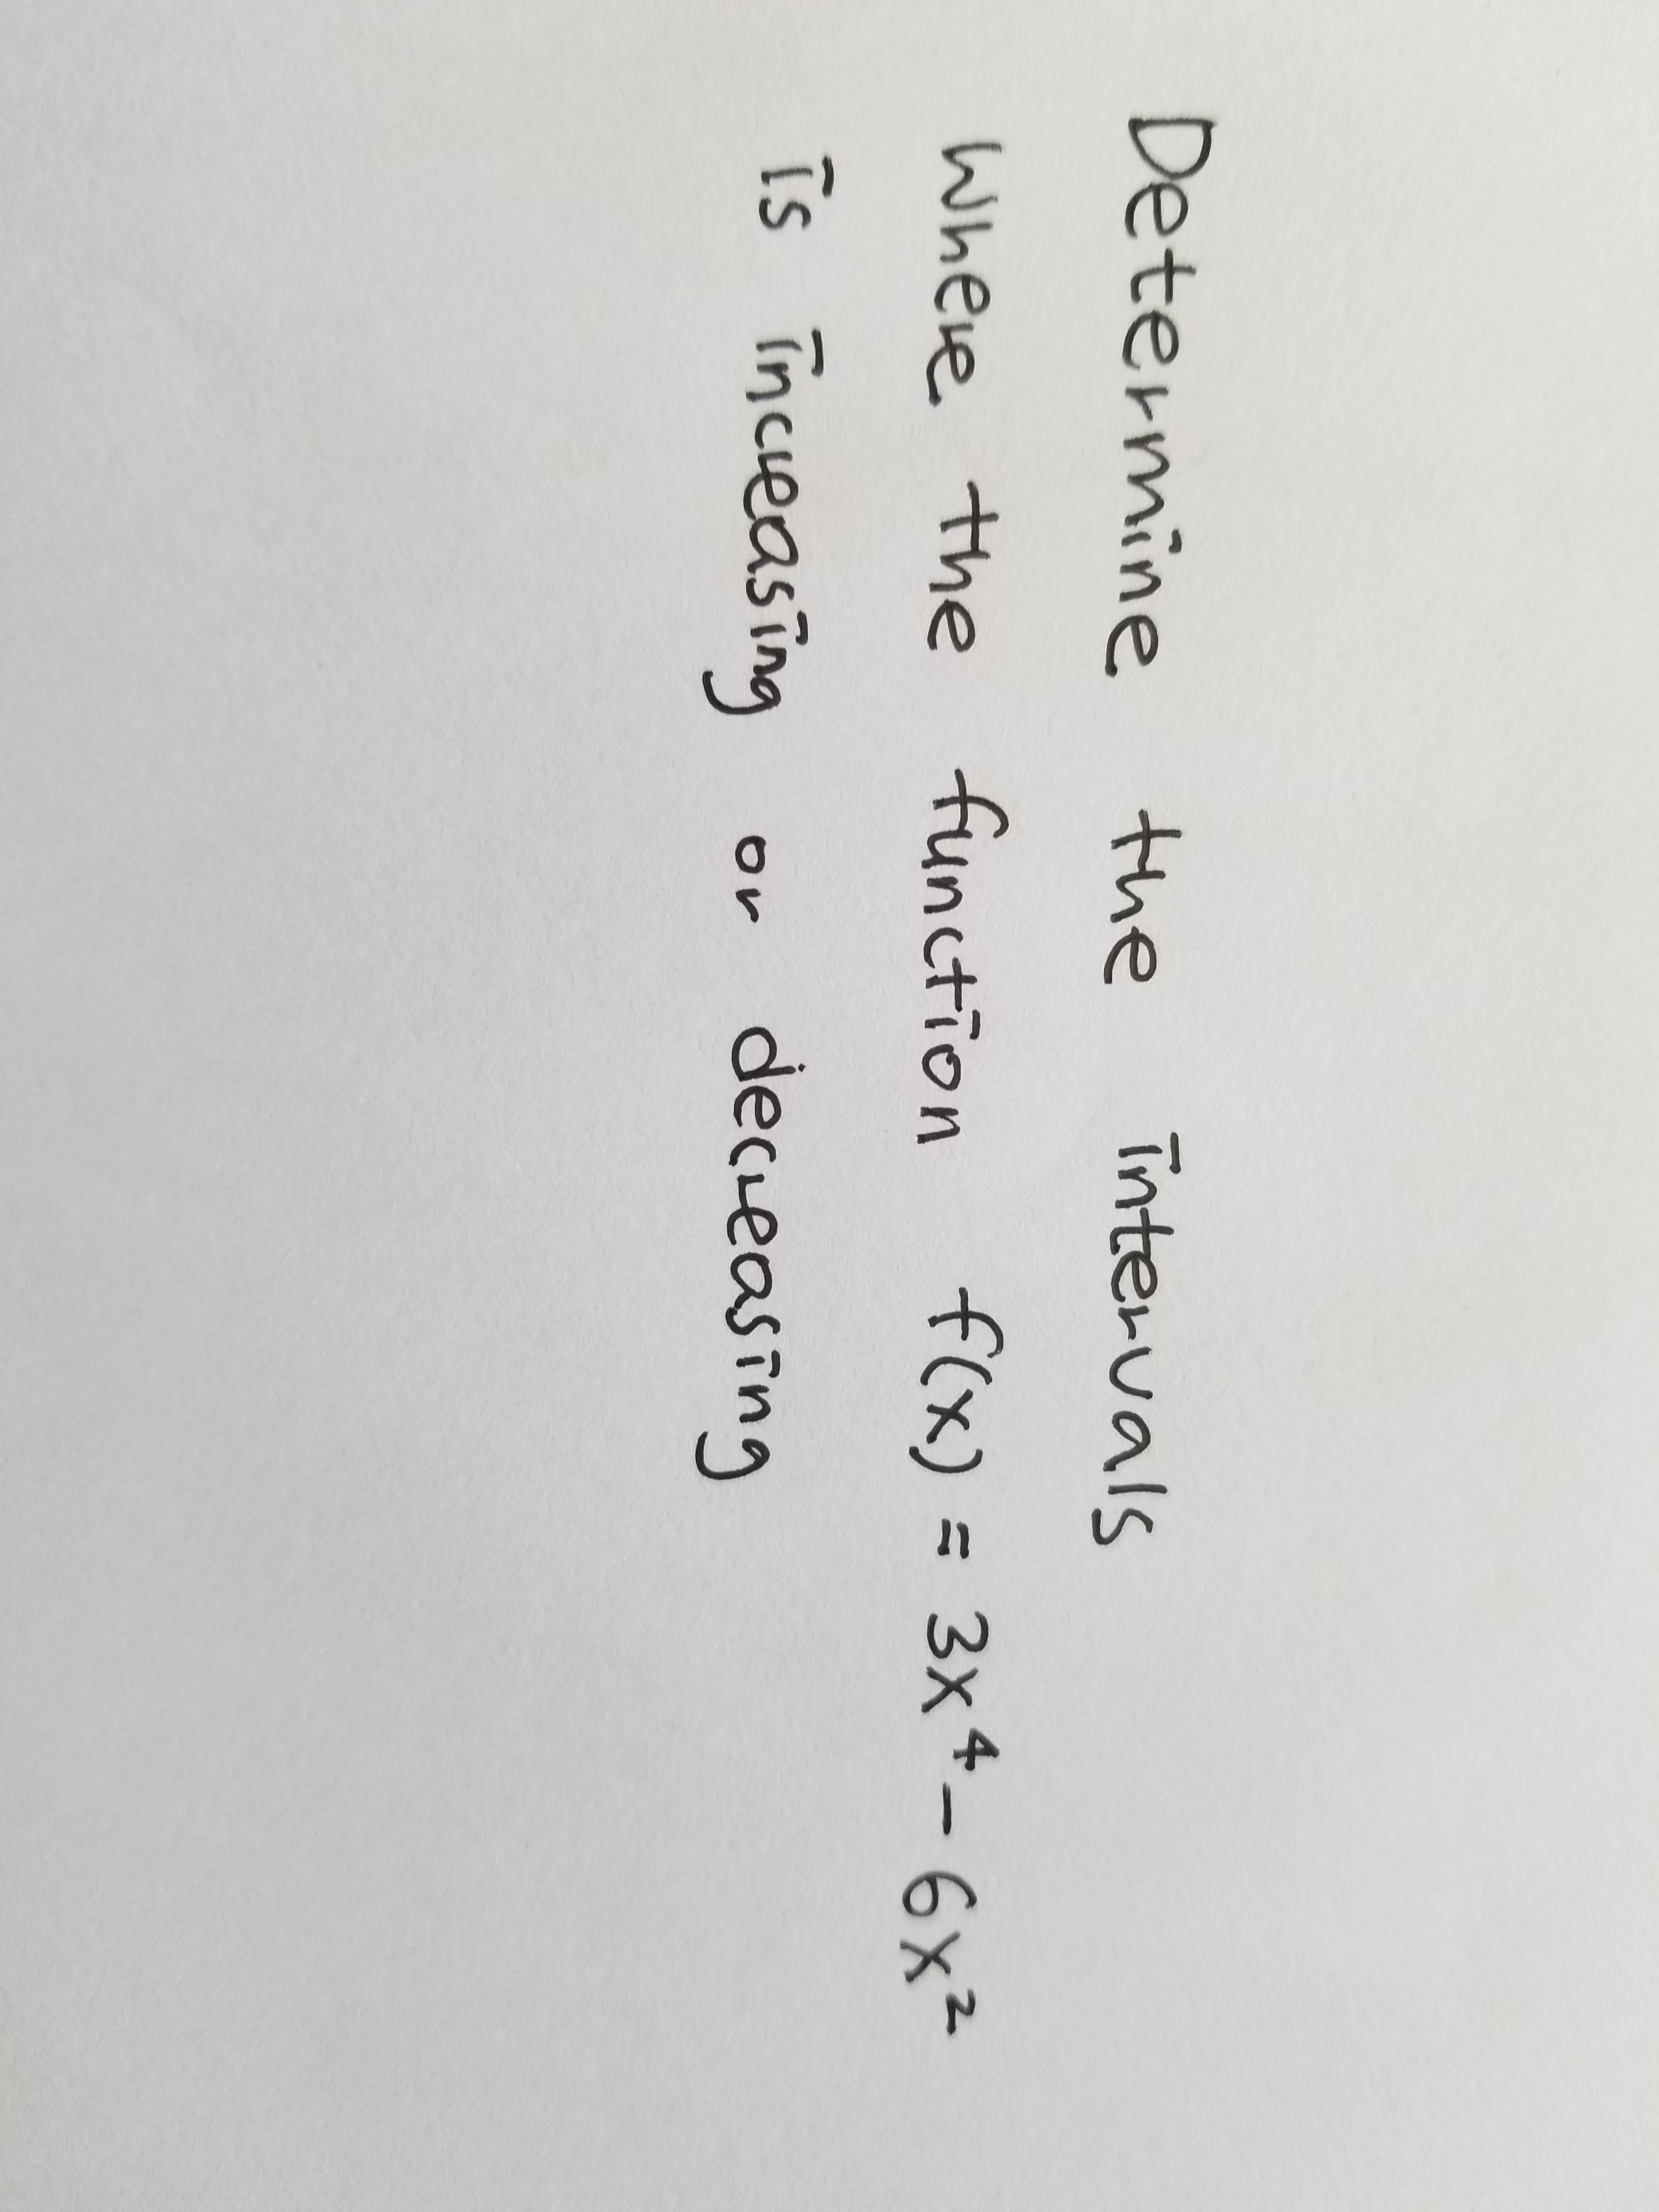 Determine the intervals
where the function f(x) = 3x⁴ - 6x²
is increasing or decreasing